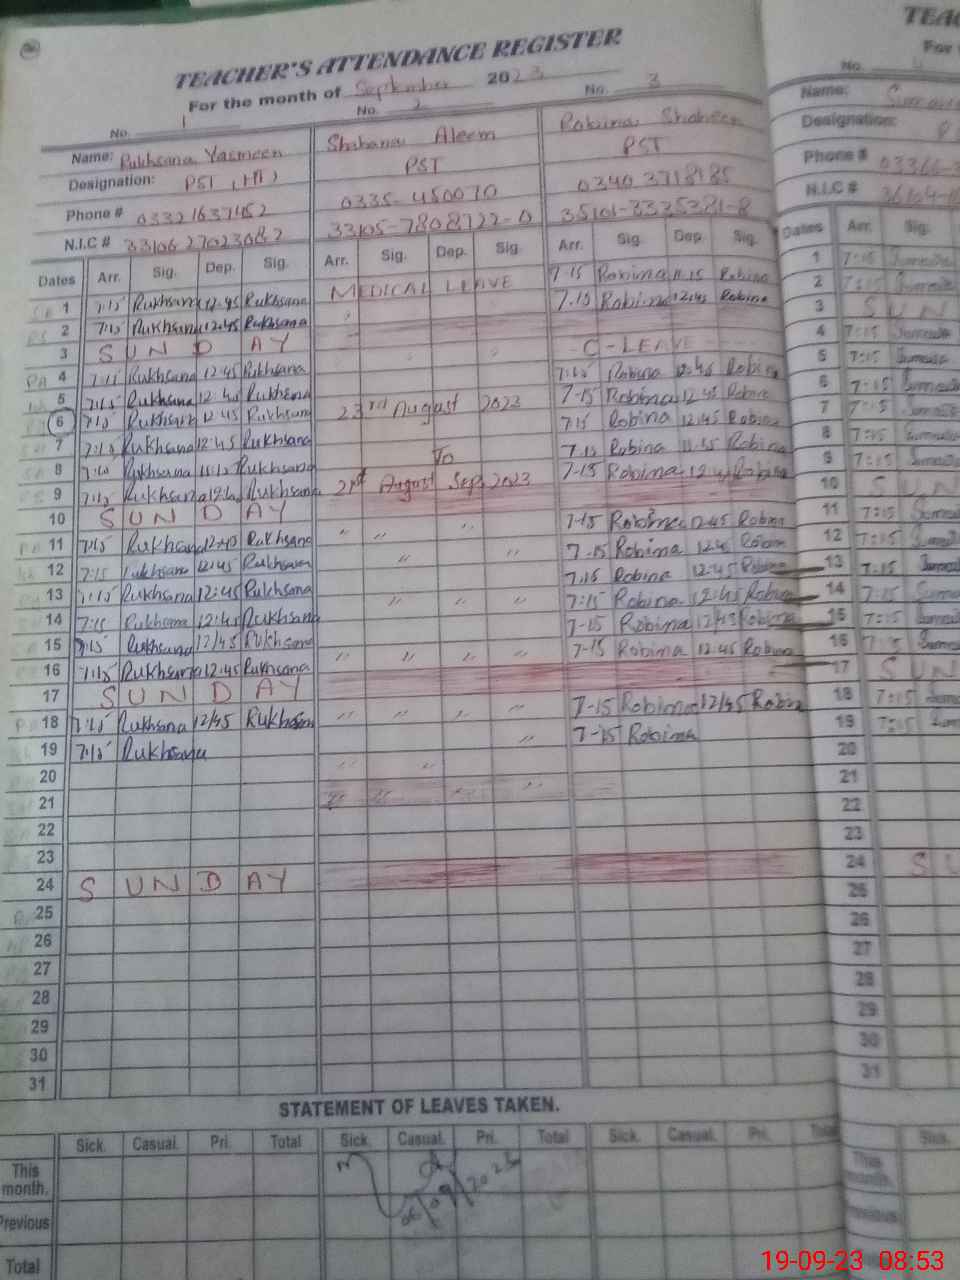 TEACHER'S ATTENDANCE REGISTER
For the month of September 2023
No. 1 No. 2 No. 3
Name: Rukhsana Yasmeen Shahana Aleem Robina Shaheen
Designation: PST (HT) PST PST
Phone # 03321637452 0335-450070 0340 3718185
N.I.C # 33106 2702308 2 33105-7808722-0 35101-3335381-8
Dates Arr. Sig. Dep. Sig. Arr. Sig. Dep. Sig. Arr. Sig. Dep. Sig.
1 7:15 Rukhsana 12:45 Rukhsana MEDICAL LEAVE 7-15 Robina 11.15 Robina
2 7:15 Rukhsana 12:45 Rukhsana 7.15 Robina 12:45 Robina
3 SUNDAY
4 7:15 Rukhsana 12:45 Rukhsana C-LEAVE
5 7:15 Rukhsana 12:45 Rukhsana 7:15 Robina 12:45 Robina
6 7:15 Rukhsana 12:45 Rukhsana 23rd August 2023 7-15 Robina 12:45 Robina
7 7:15 Rukhsana 12:45 Rukhsana 7:15 Robina 12:45 Robina
8 Rukhsana 11:15 Rukhsana To 7.15 Robina 11:15 Robina
9 7:15 Rukhsana Rukhsana 21st August Sep 2023 7-15 Robina Robina
10 SUNDAY
11 7:15 Rukhsana 12:45 Rukhsana 〃 〃 7-15 Robina 12:45 Robina
12 7:15 Rukhsana 12:45 Rukhsana 〃 〃 7-15 Robina 12:45 Robina
13 7:15 Rukhsana 12:45 Rukhsana 〃 〃 〃 7:15 Robina 12:45 Robina
14 7:15 Rukhsana 12:45 Rukhsana 7:15 Robina 12:45 Robina
15 7:15 Rukhsana 12/45 Rukhsana 〃 〃 〃 〃 7-15 Robina 12:45 Robina
16 7:15 Rukhsana 12:45 Rukhsana 7-15 Robina 12:45 Robina
17 SUNDAY
18 7:15 Rukhsana 12/45 Rukhsana 〃 〃 〃 〃 7-15 Robina 12/45 Robina
19 7:15 Rukhsana 〃 7-15 Robina
20 〃 〃
21 〃 〃 〃 〃
22
23
24 SUNDAY
25
26
27
28
29
30
31
STATEMENT OF LEAVES TAKEN.
Sick. Casual. Pri. Total Sick. Casual. Pri. Total Sick. Casual. Pri. Total
This month.
Previous
06/09/2023
Total
No.
Name:
Designation:
Phone #
N.I.C #
Dates Arr. Sig.
1 7:15
2 7:15
3 SUN
4 7:15
5 7:15
6 7:15
7 7:15
8 7:15
9 7:15
10 SUN
11 7:15
12 7:15
13 7.15
14 7:15
15 7:15
16 7:15
17 SUN
18 7:15
19 7:15
20
21
22
23
24 SU
25
26
27
28
29
30
31
Sick.
This month.
Previous
Total
19-09-23 08:53